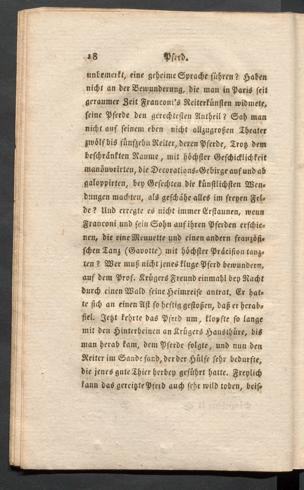 18 Pferd.
unbemerkt, eine geheime Sprache führen? Haben
nicht an der Bewunderung, die man in Paris seit
geraumer Zeit Franconi's Reiterkünsten widmete,
seine Pferde den gerechtesten Antheil? Sah man
nicht auf seinem eben nicht allzugroßen Theater
zwölf bis fünfzehn Reiter, deren Pferde, Trotz dem
beschränkten Raume, mit höchster Geschicklichkeit
manöuvrirten, die Decorations-Gebirge auf und ab
galoppirten, bey Gefechten die künstlichsten Wen-
dungen machten, als geschähe alles im freyen Fel-
de? Und erregte es nicht immer Erstaunen, wenn
Franconi und sein Sohn auf ihren Pferden erschie-
nen, die eine Menuette und einen andern französi-
schen Tanz (Gavotte) mit höchster Präcision tanz-
ten? Wer muß nicht jenes kluge Pferd bewundern,
auf dem Prof. Krügers Freund einmahl bey Nacht
durch einen Wald seine Heimreise antrat. Er hat-
te sich an einen Ast so heftig gestoßen, daß er herab-
fiel. Jetzt kehrte das Pferd um, klopfte so lange
mit den Hinterbeinen an Krügers Hausthüre, bis
man herab kam, dem Pferde folgte, und nun den
Reiter im Sande fand, der der Hülfe sehr bedurfte,
die jenes gute Thier herbey geführt hatte. Freylich
kann das gereitzte Pferd auch sehr wild toben, beis-